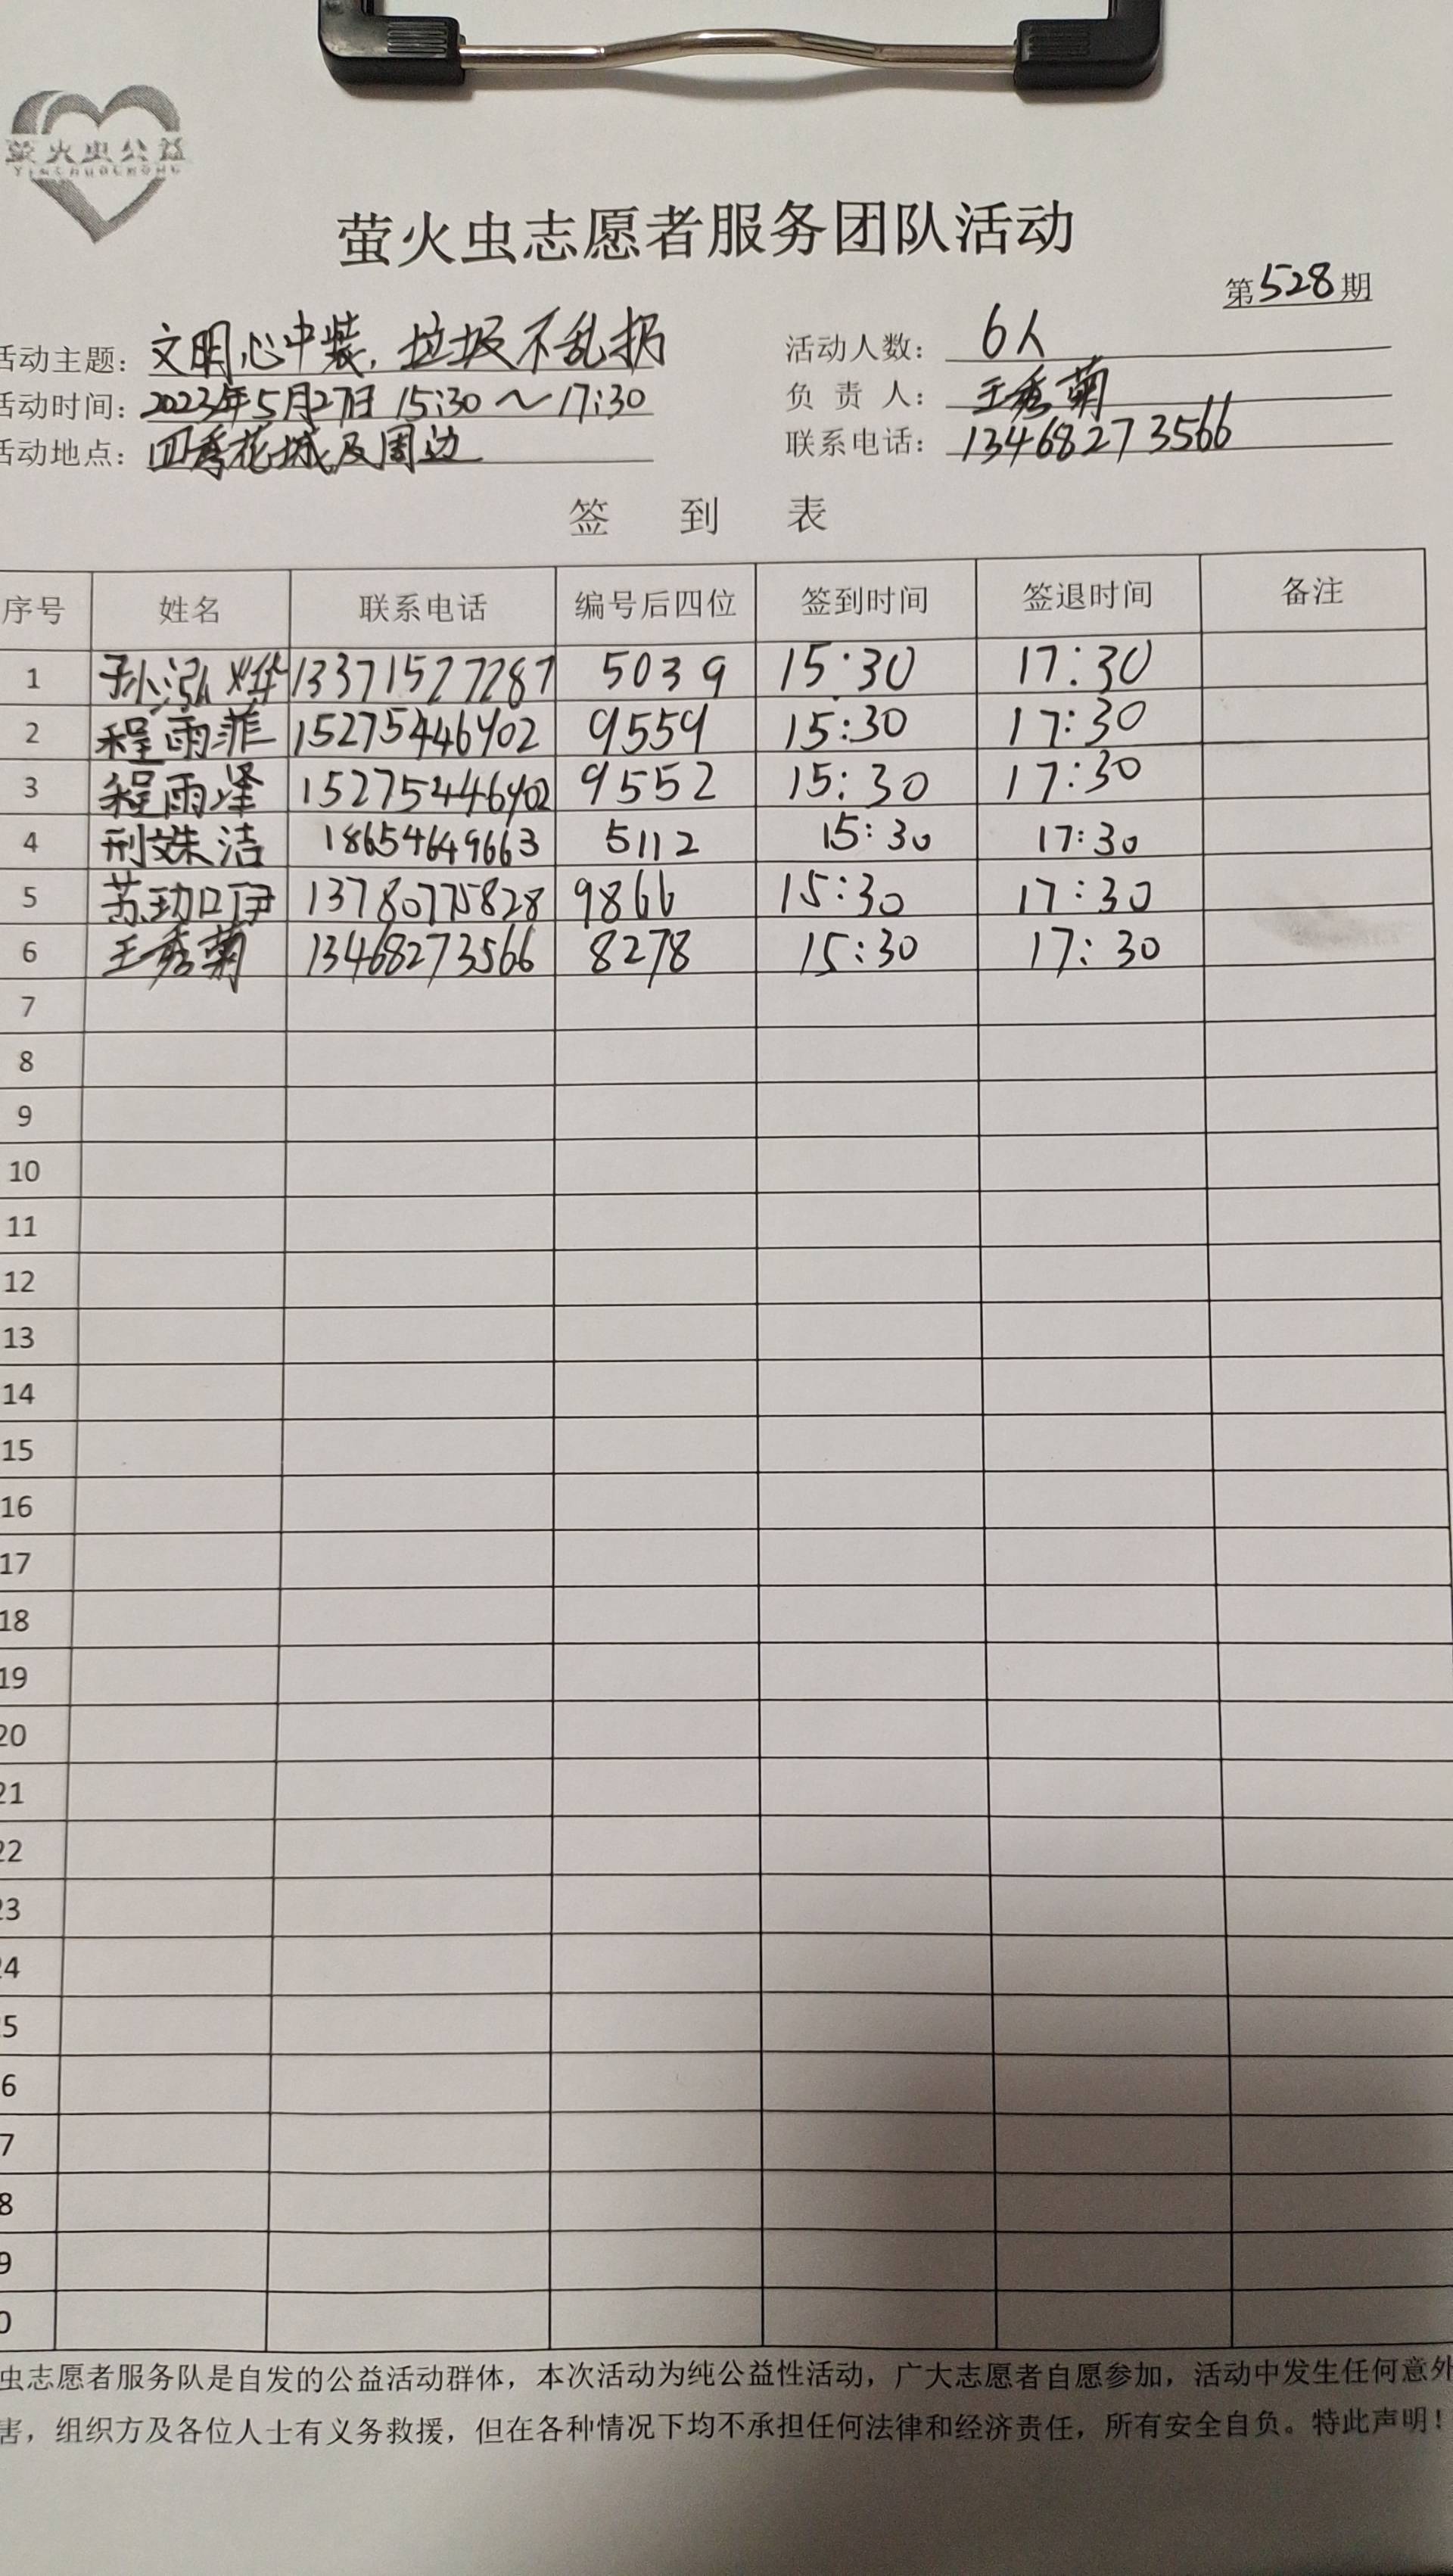 萤火虫公益
YINGHUOCHONG
萤火虫志愿者服务团队活动
第528期
活动主题：文明心中装，垃圾不乱扔 活动人数：6人
活动时间：2023年5月27日 15:30～17:30 负责人：王秀菊
活动地点：四季花城及周边 联系电话：13468273566
签到表
序号 姓名 联系电话 编号后四位 签到时间 签退时间 备注
1 孙泓烨 13371527287 5039 15:30 17:30
2 程雨菲 15275446402 9559 15:30 17:30
3 程雨泽 15275446402 9552 15:30 17:30
4 刑姝洁 18654649663 5112 15:30 17:30
5 苏玏口伊 13780775828 9866 15:30 17:30
6 王秀菊 13468273566 8278 15:30 17:30
7
8
9
10
11
12
13
14
15
16
17
18
19
20
21
22
23
24
5
6
7
8
9
0
虫志愿者服务队是自发的公益活动群体，本次活动为纯公益性活动，广大志愿者自愿参加，活动中发生任何意外
害，组织方及各位人士有义务救援，但在各种情况下均不承担任何法律和经济责任，所有安全自负。特此声明！